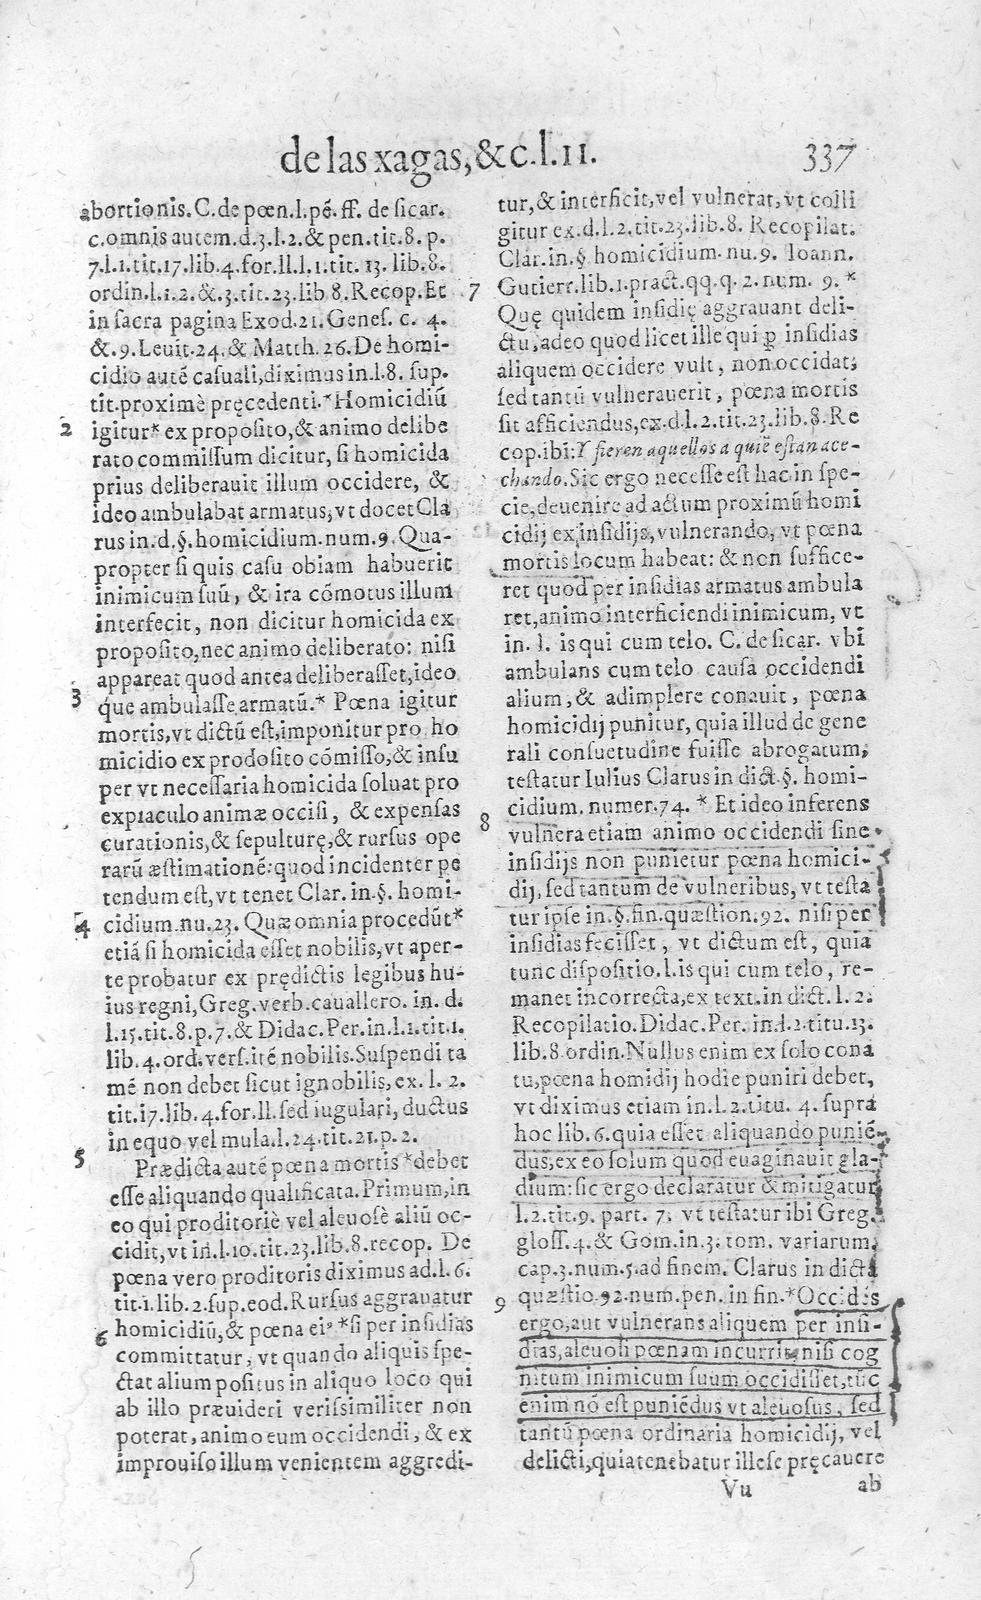 de las xagas, &c. l. 11.
337
abortionis. C. de pœn. l. pē. ff. de sicar.
c. omnis autem. d. 3. l. 2. & pen. tit. 8. p.
7. l. 1. tit. 17. lib. 4. for. ll. l. 1. tit. 13. lib. 8.
ordin. l. 1. 2. &. 3. tit. 23. lib 8. Recop. Et
in sacra pagina Exod. 21. Genes. c. 4.
&. 9. Leuit. 24. & Matth. 26. De homi-
cidio autē casuali, diximus in. l. 8. sup.
tit. proximè pręcedenti. * Homicidiū
2 igitur* ex proposito, & animo delibe
rato commissum dicitur, si homicida
prius deliberauit illum occidere, &
ideo ambulabat armatus, vt docet Cla
rus in. d. §. homicidium. num. 9. Qua-
propter si quis casu obiam habuerit
inimicum suū, & ira cōmotus illum
interfecit, non dicitur homicida ex
proposito, nec animo deliberato: nisi
appareat quod antea deliberasset, ideo
3 que ambulasse armatū. * Pœna igitur
mortis, vt dictū est, imponitur pro ho
micidio ex prodosito cōmisso, & insu
per vt necessaria homicida soluat pro
expiaculo animæ occisi, & expensas
curationis, & sepulturę, & rursus ope
rarū æstimationē: quod incidenter pe
tendum est, vt tenet Clar. in. §. homi-
4 cidium. nu. 23. Quæ omnia procedūt*
etiā si homicida esset nobilis, vt aper-
te probatur ex prędictis legibus hu-
ius regni, Greg. verb. cauallero. in. d.
l. 15. tit. 8. p. 7. & Didac. Per. in. l. 1. tit. 1.
lib. 4. ord. vers. itē nobilis. Suspendi ta
mē non debet sicut ignobilis, ex. l. 2.
tit. 17. lib. 4. for. ll. sed iugulari, ductus
in equo vel mula. l. 24. tit. 21. p. 2.
5 Prædicta autē pœna mortis * debet
esse aliquando qualificata. Primum, in
eo qui proditoriè vel aleuosè aliū oc-
cidit, vt in. l. 10. tit. 23. lib. 8. recop. De
pœna vero proditoris diximus ad. l. 6.
tit. 1. lib. 2. sup. eod. Rursus aggrauatur
6 homicidiū, & pœna ei' * si per insidias
committatur, vt quando aliquis spe-
ctat alium positus in aliquo loco qui
ab illo præuideri verissimiliter non
poterat, animo eum occidendi, & ex
improuiso illum venientem aggredi-
tur, & interficit, vel vulnerat, vt colli
gitur ex. d. l. 2. tit. 23. lib. 8. Recopilat.
Clar. in. § homicidium. nu. 9. Ioann.
7 Gutierr. lib. 1. pract. qq. q. 2. num. 9. *
Quę quidem insidię aggrauant deli-
ctū, adeo quod licet ille qui ꝑ insidias
aliquem occidere vult, non occidat;
sed tantū vulnerauerit, pœna mortis
sit afficiendus, ex. d. l. 2. tit. 23. lib. 8. Re
cop. ibi: Y fieren aquellos a quiē estan ace-
chando. Sic ergo necesse est hac in spe-
cie, deuenire ad actum proximū homi
cidij ex insidijs, vulnerando, vt pœna
mortis locum habeat: & non suffice-
ret quod per insidias armatus ambula
ret, animo interficiendi inimicum, vt
in. l. is qui cum telo. C. de sicar. vbi
ambulans cum telo causa occidendi
alium, & adimplere conauit, pœna
homicidij punitur, quia illud de gene
rali consuetudine fuisse abrogatum,
testatur Iulius Clarus in dict. §. homi-
cidium. numer. 74. * Et ideo inferens
8 vulnera etiam animo occidendi sine
insidijs non punietur pœna homici-
dij, sed tantum de vulneribus, vt testa
tur ipse in. §. fin. quæstion. 92. nisi per
insidias fecisset, vt dictum est, quia
tunc dispositio. l. is qui cum telo, re-
manet incorrecta, ex text. in dict. l. 2.
Recopilatio. Didac. Per. in. l. 2. titu. 13.
lib. 8 ordin. Nullus enim ex solo cona
tu, pœna homidij hodie puniri debet,
vt diximus etiam in. l. 2. titu. 4. supra
hoc lib. 6. quia esset aliquando puniē-
dus, ex eo solum quod euaginauit gla-
dium: sic ergo declaratur & mitigatur
l. 2. tit. 9. part. 7. vt testatur ibi Greg.
gloss. 4. & Gom. in. 3. tom. variarum.
cap. 3. num. 5. ad finem. Clarus in dicta
9 quæstio. 92. num. pen. in fin. * Occidēs
ergo, aut vulnerans aliquem per insi-
dias, aleuosi pœnam incurrit, nisi cog
nitum inimicum suum occidisset, tūc
enim nō est puniēdus vt aleuosus, sed
tantū pœna ordinaria homicidij, vel
delicti, quia tenebatur ille se pręcauere
Vu ab